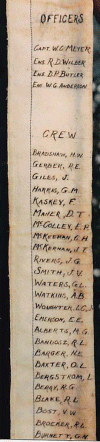 OFFICERS
CAPT. W.C. MEYER
ENS. R.D. WILBER
ENS. D.P. BUTLER
ENS. W.G. ANDERSON
CREW
BRADSHAW, H.W.
GERBER, R.L.
GILES, J.
HARRIS, G.M.
KASKEY, F.
MAHER, D.T.
MCGOLLEY, E.P.
H
MCKERNAN, J.T.
RIVERS, J.G.
SMITH, J.V.
WATERS, G.L.
WATKINS, A.B.
EMERSON, C.E.
ALBERTS, M.G.
BANDOSZ, R.L.
BARGER, H.L.
BAXTER, O.L.
BERGSTROM, L.
BERRY, R.G.
BLAKE, R.L.
BOST, V.W.
BROCKER, R.L.
BURNETT, G.N.